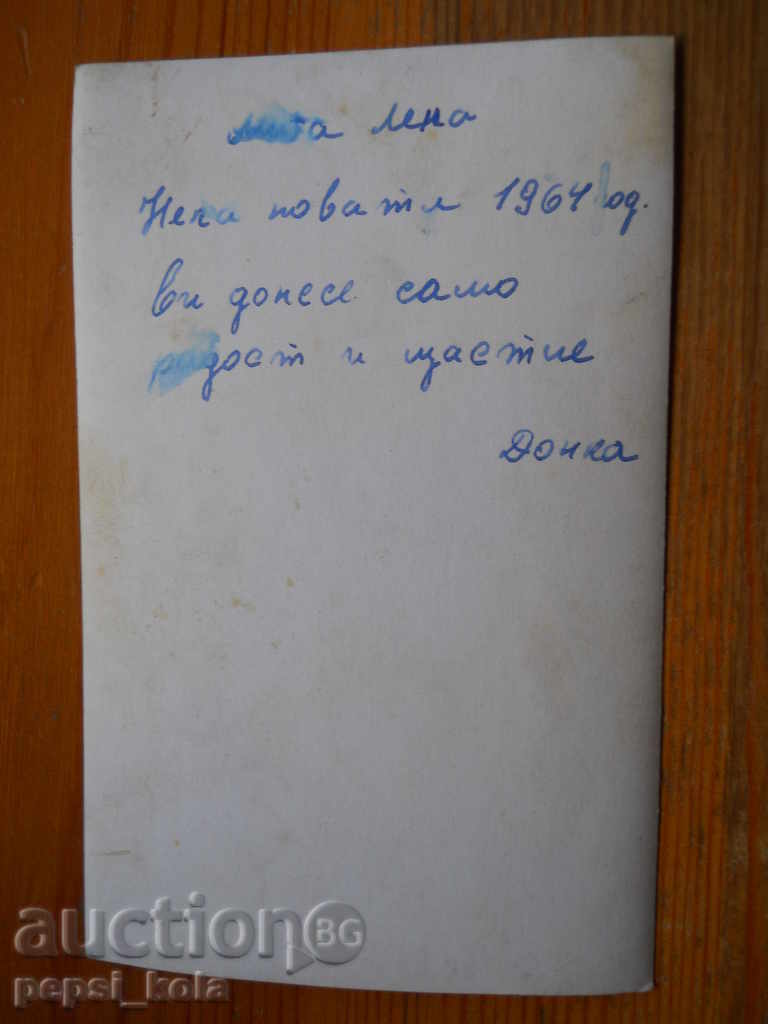 Лена
Нека новата 1964 год.
ви донесе само
радост и щастие
Донка
auctionBG
pepsi_kola